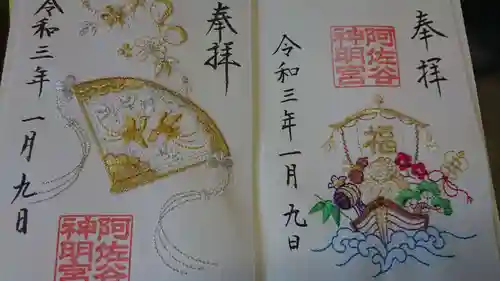 奉拝
阿佐谷
神明宮
令和三年一月九日
福
奉拝
令和三年一月九日
阿佐谷
神明宮